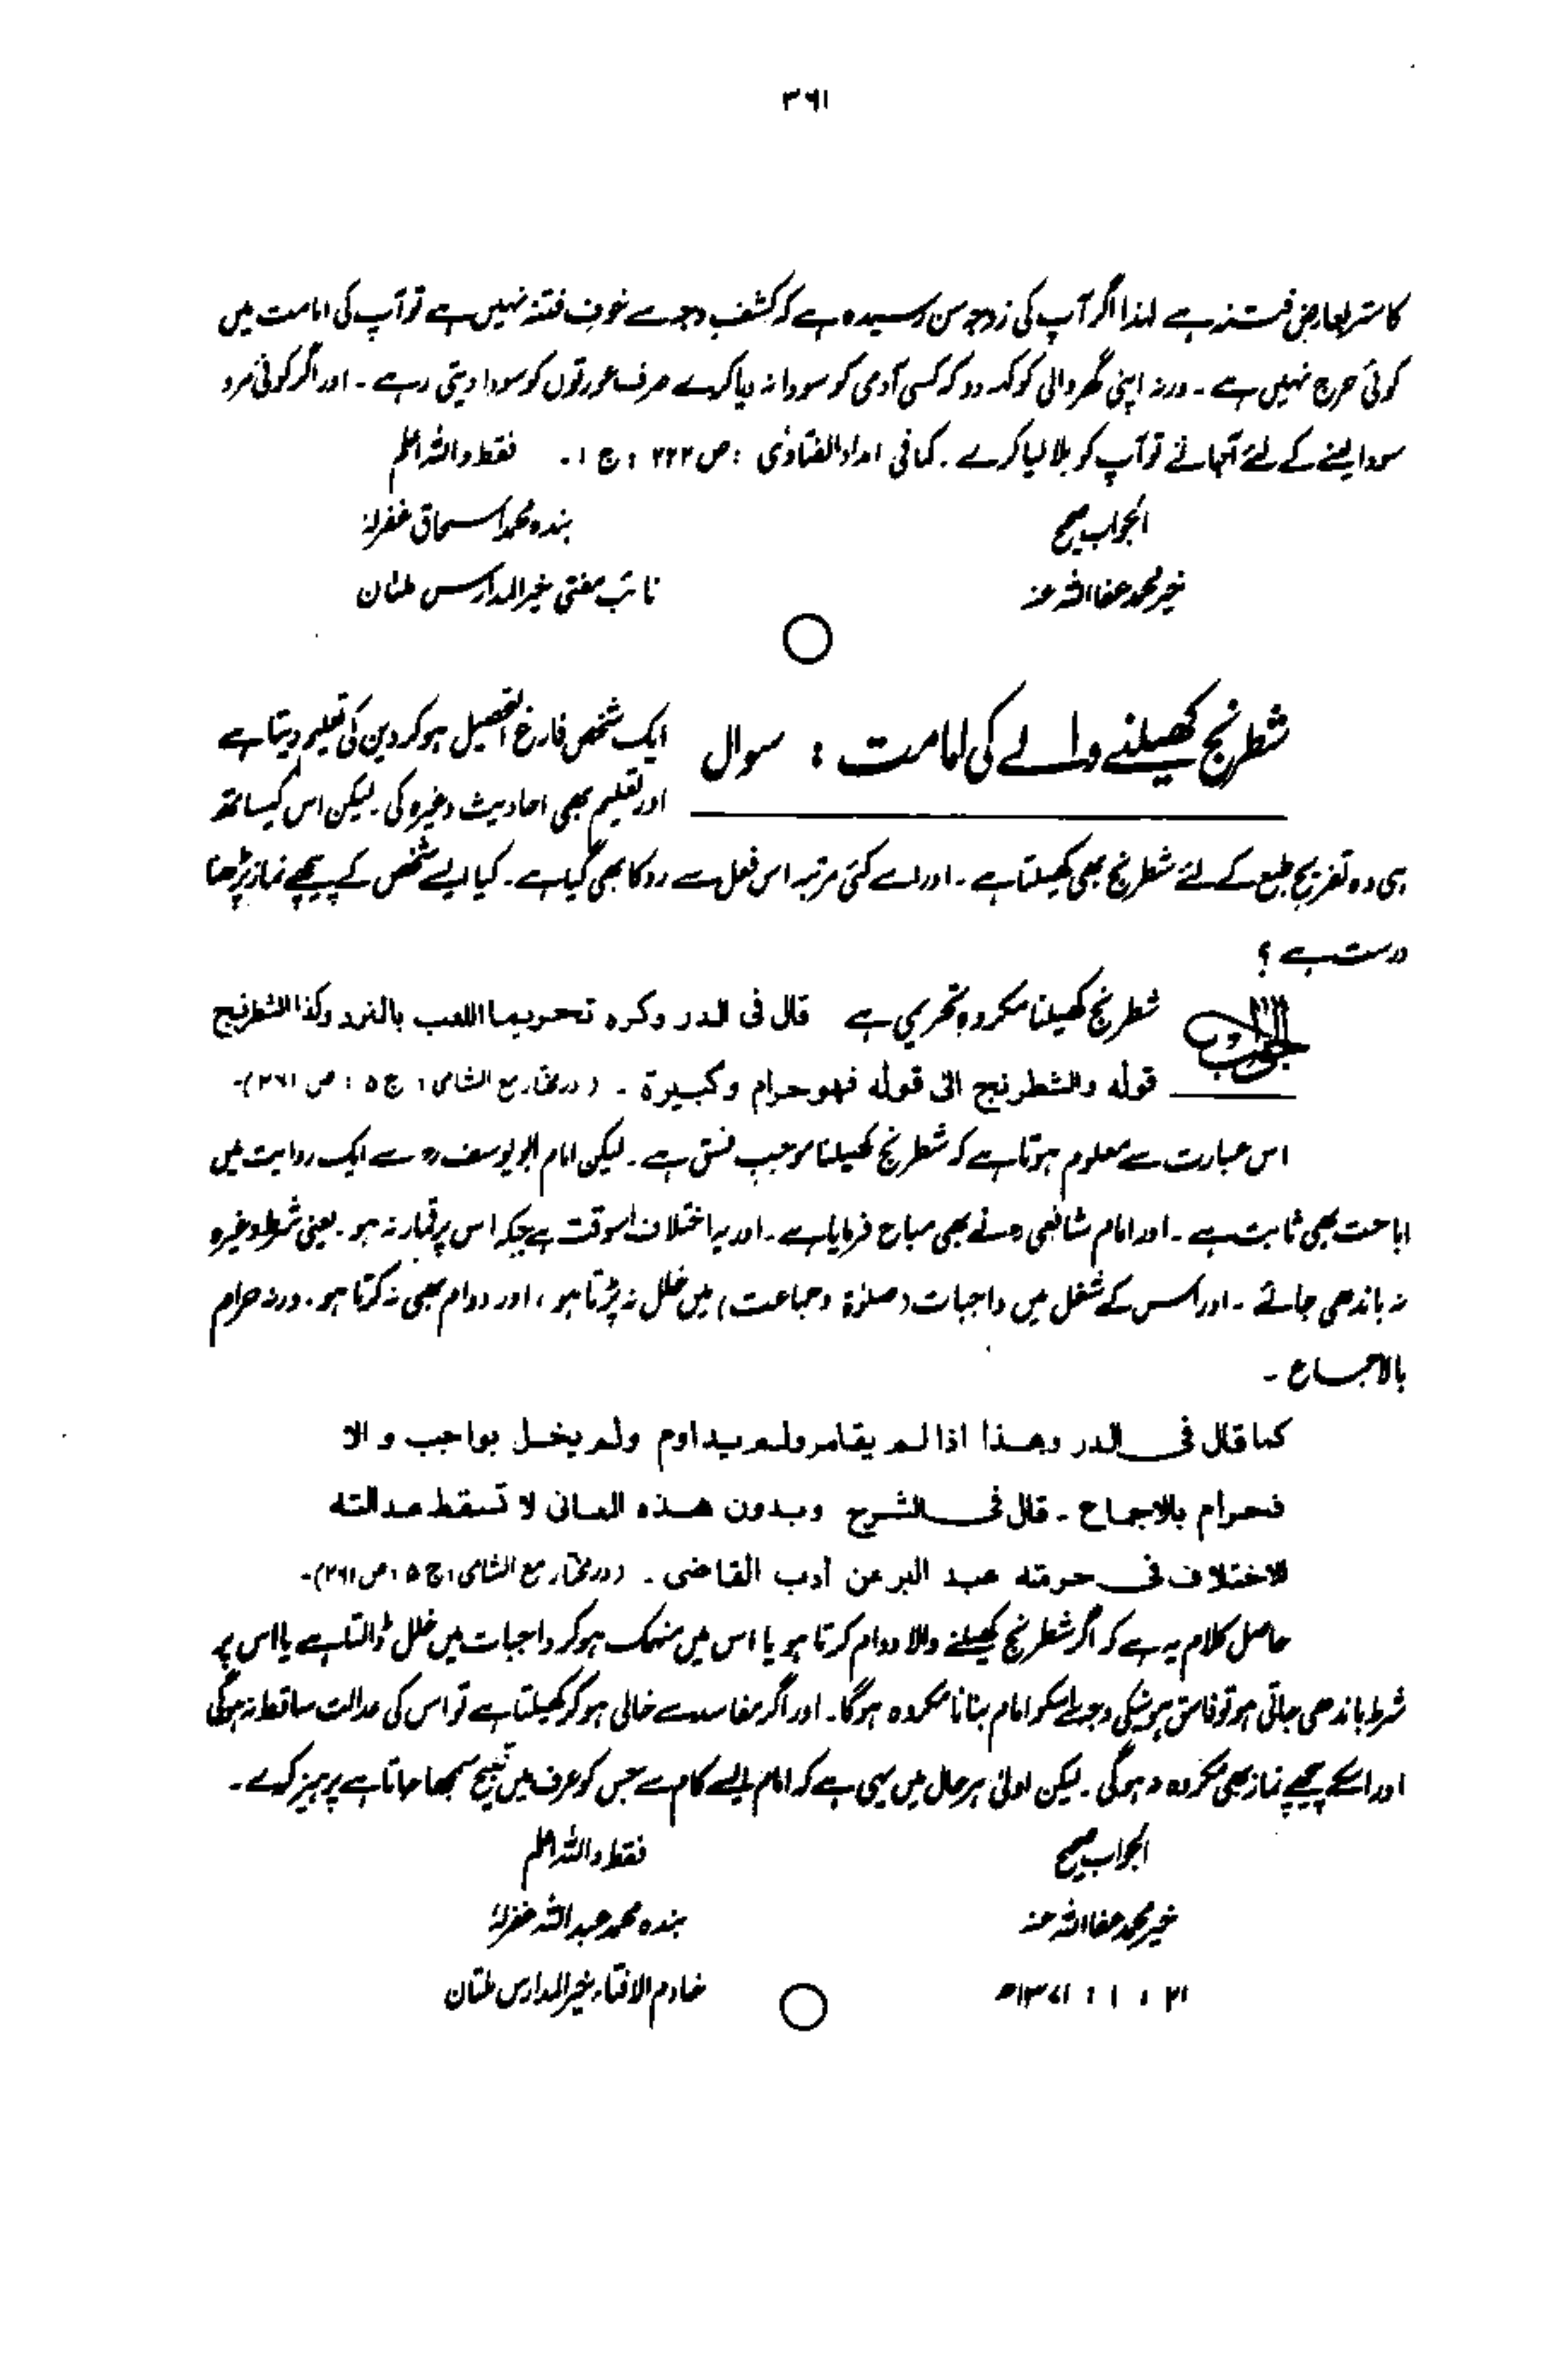 ۳۶۱
کا ستر بعارض فتنہ ہے لہٰذا اگر آپ کی زوجہ سن رسیدہ ہے کہ کشف وجہ سے خوف فتنہ نہیں ہے تو آپ کی امامت میں
کوئی حرج نہیں ہے ۔ ورنہ اپنی گھر والی کو کہہ دو کہ کسی آدمی کو سودا نہ دیا کرے صرف عورتوں کو سودا دیتی رہے ۔ اور اگر کوئی مرد
سودا لینے کے لئے آجائے تو آپ کو بلا لیا کرے ۔ کما فی امداد الفتاوٰی : ص ۲۲۳ ، ج ۱ ۔ فقط واللہ اعلم
الجواب صحیح بندہ محمد اسحاق غفرلہٗ
خیر محمد عفا اللہ عنہ نائب مفتی خیر المدارس ملتان
شطرنج کھیلنے والے کی امامت : سوال ایک شخص فارغ التحصیل ہو کر دین کی تعلیم دیتا ہے
اور تعلیم بھی احادیث وغیرہ کی ۔ لیکن اس کیساتھ
ہی وہ تفریح طبع کے لئے شطرنج بھی کھیلتا ہے ۔ اور اسے کئی مرتبہ اس فعل سے روکا بھی گیا ہے ۔ کیا ایسے شخص کے پیچھے نماز پڑھنا
درست ہے ؟
الجواب شطرنج کھیلنا مکروہ تحریمی ہے قال فی الدر وکره تحریما اللعب بالنرد وکذا الشطرنج
قوله والشطرنج الی قوله فهو حرام وکبیرة ۔ (درمختار مع الشامی ، ج ۵ : ص ۲۶۱)۔
اس عبارت سے معلوم ہوتا ہے کہ شطرنج کھیلنا موجب فسق ہے ۔ لیکن امام ابو یوسف رہ سے ایک روایت میں
اباحت بھی ثابت ہے ۔ اور امام شافعی رہ نے بھی مباح فرمایا ہے ۔ اور یہ اختلاف اسوقت ہے جبکہ اس پر قمار نہ ہو ۔ یعنی شرط وغیرہ
نہ باندھی جائے ۔ اور اس کے شغل میں واجبات (صلوٰۃ وجماعت) میں خلل نہ پڑتا ہو ، اور دوام بھی نہ کرتا ہو ۔ ورنہ حرام
بالاجماع ۔
کما قال فی الدر وهذا اذا لم یقامر ولم یداوم ولم یخل بواجب والا
فحرام بالاجماع ۔ قال فی الشرح وبدون هذه المعانی لا تسقط عدالته
للاختلاف فی حرمته عبد البر عن أدب القاضی ۔ (درمختار مع الشامی ، ج ۵ ، ص ۲۶۱)۔
حاصل کلام یہ ہے کہ اگر شطرنج کھیلنے والا دوام کرتا ہو یا اس میں منہمک ہو کر واجبات میں خلل ڈالتا ہے یا اس پر
شرط باندھی جاتی ہو تو فاسق ہونیکی وجہ سے اسکو امام بنانا مکروہ ہوگا ۔ اور اگر مفاسد سے خالی ہو کر کھیلتا ہے تو اس کی عدالت ساقط نہ ہوگی
اور اسکے پیچھے نماز بھی مکروہ نہ ہوگی ۔ لیکن اولیٰ ہر حال میں یہی ہے کہ امام ایسے کام سے جس کو عرف میں قبیح سمجھا جاتا ہے پرہیز کرے ۔
الجواب صحیح فقط واللہ اعلم
خیر محمد عفا اللہ عنہ بندہ محمد عبد اللہ غفرلہٗ
۲۱ ، ۱ : ۱۳۷۱ھ خادم الافتاء خیر المدارس ملتان